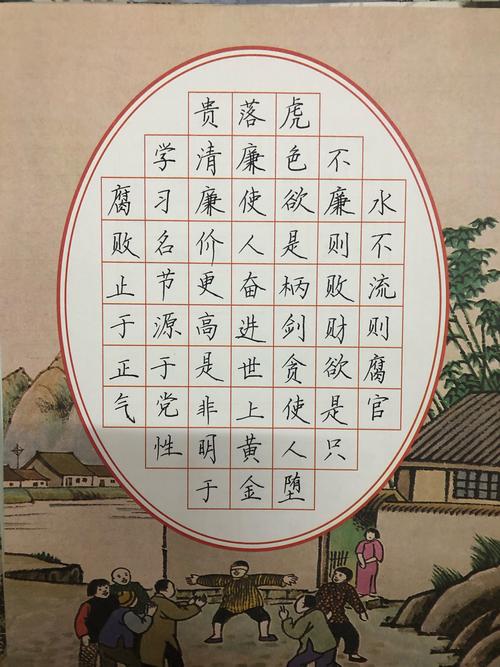 水不流则腐官
不廉则败财欲是只
虎色欲是柄剑贪使人堕
落廉使人奋进世上黄金
贵清廉价更高是非明于
学习名节源于党性
腐败止于正气